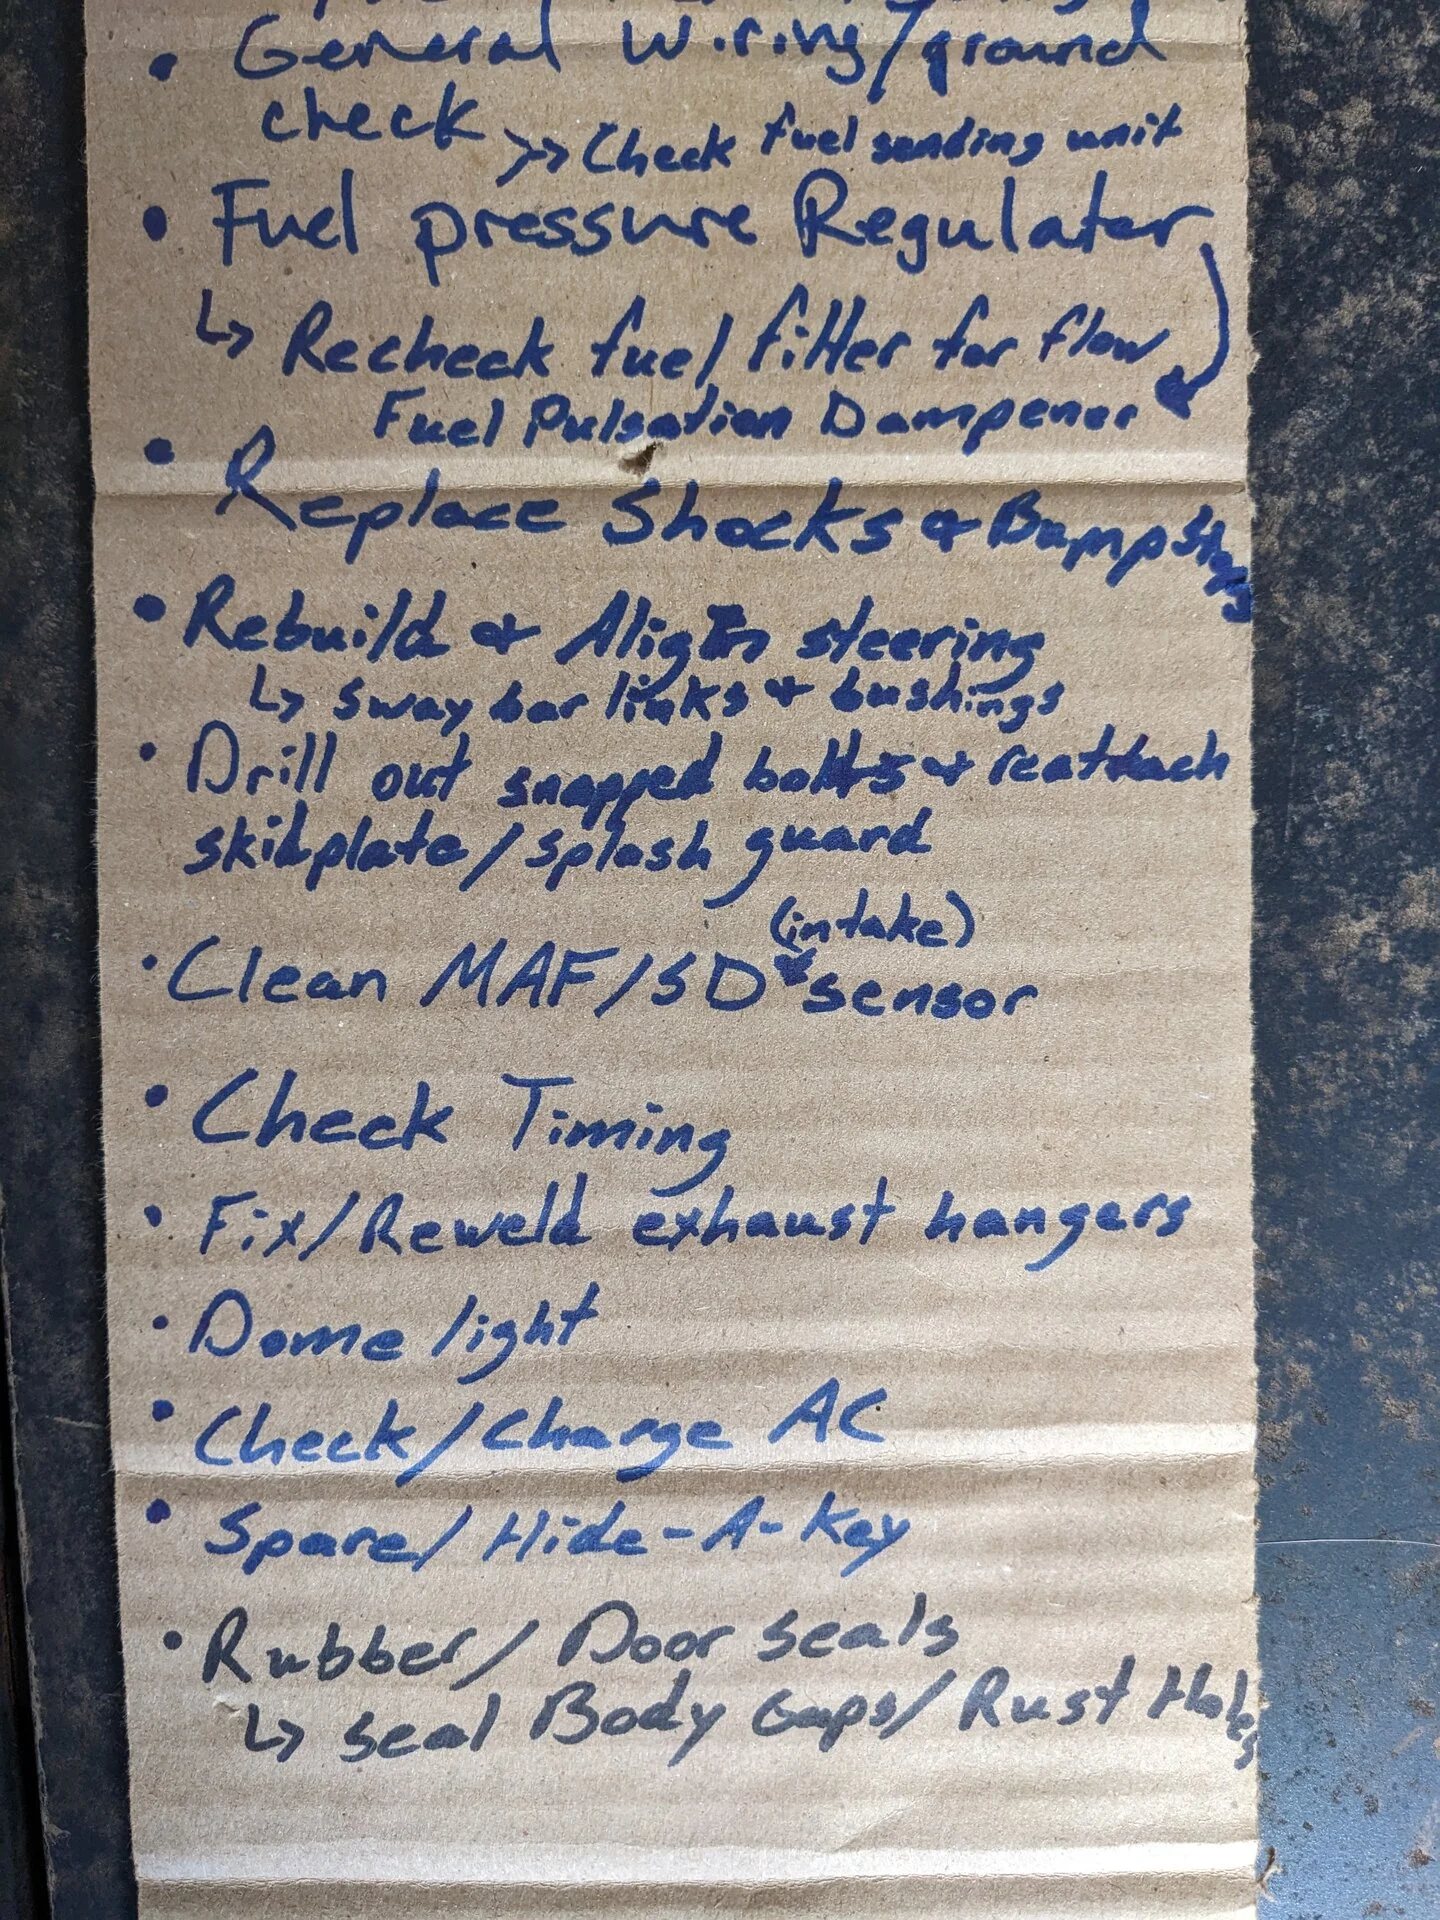 • General Wiring/ground
check >> Check fuel sending unit
• Fuel pressure Regulater
↳ Recheck fuel filter for flow
Fuel Pulsation Dampener
• Replace Shocks & Bump Stops
• Rebuild & Align steering
↳ sway bar links & bushings
• Drill out snapped bolts & reattach
skidplate/splash guard
(intake)
• Clean MAF/SD sensor
• Check Timing
• Fix/Reweld exhaust hangers
• Dome light
• Check/Charge AC
• Spare/Hide-A-Key
• Rubber/Door seals
↳ seal Body Gaps/Rust Holes